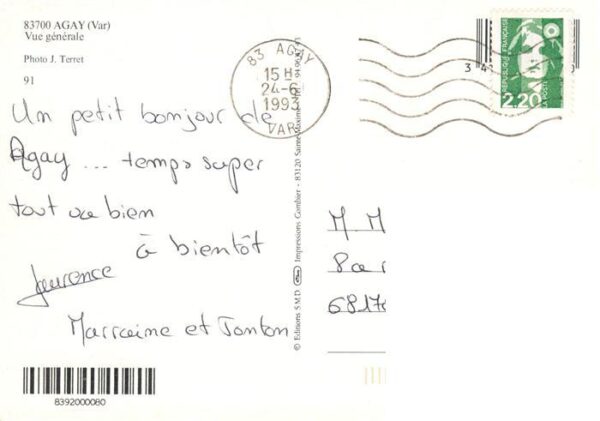 83700 AGAY (Var)
Vue générale
Photo J. Terret
91
Un petit bonjour de
Agay ... temps super
tout va bien
à bientôt
Laurence
Marraine et Tonton
8392000080
83 AGAY
15 H
24-6
1993
VAR
© Editions S.M.D. Impressions Combier - 83120 Sainte-Maxime
REPUBLIQUE FRANÇAISE
2,20
M M
8a r
6817